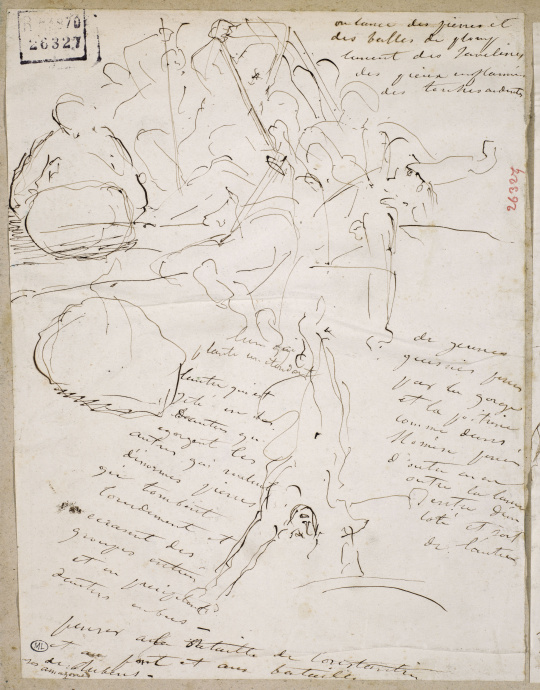 RF 23970
26327
on lance des pierres et
des balles de plomb
lancent des Javelines
des pieux enflammés
des torches ardentes
26327
l'un qui
plante un étendard
d'autres qui
égorgent les
autres qui roulent
d'énormes pierres
qui tombent
lourdement et
écrasent des
groupes entiers
et en précipitent
d'autres en bas -
de jeunes
guerriers percés
par la gorge
et la poitrine
comme dans
Homère percé
d'outre en
outre la lance
entre d'un
côté et sort
de l'autre
penser à la Bataille de Constantin
et au pont et aux batailles
de Rubens -
ses amazones
ML